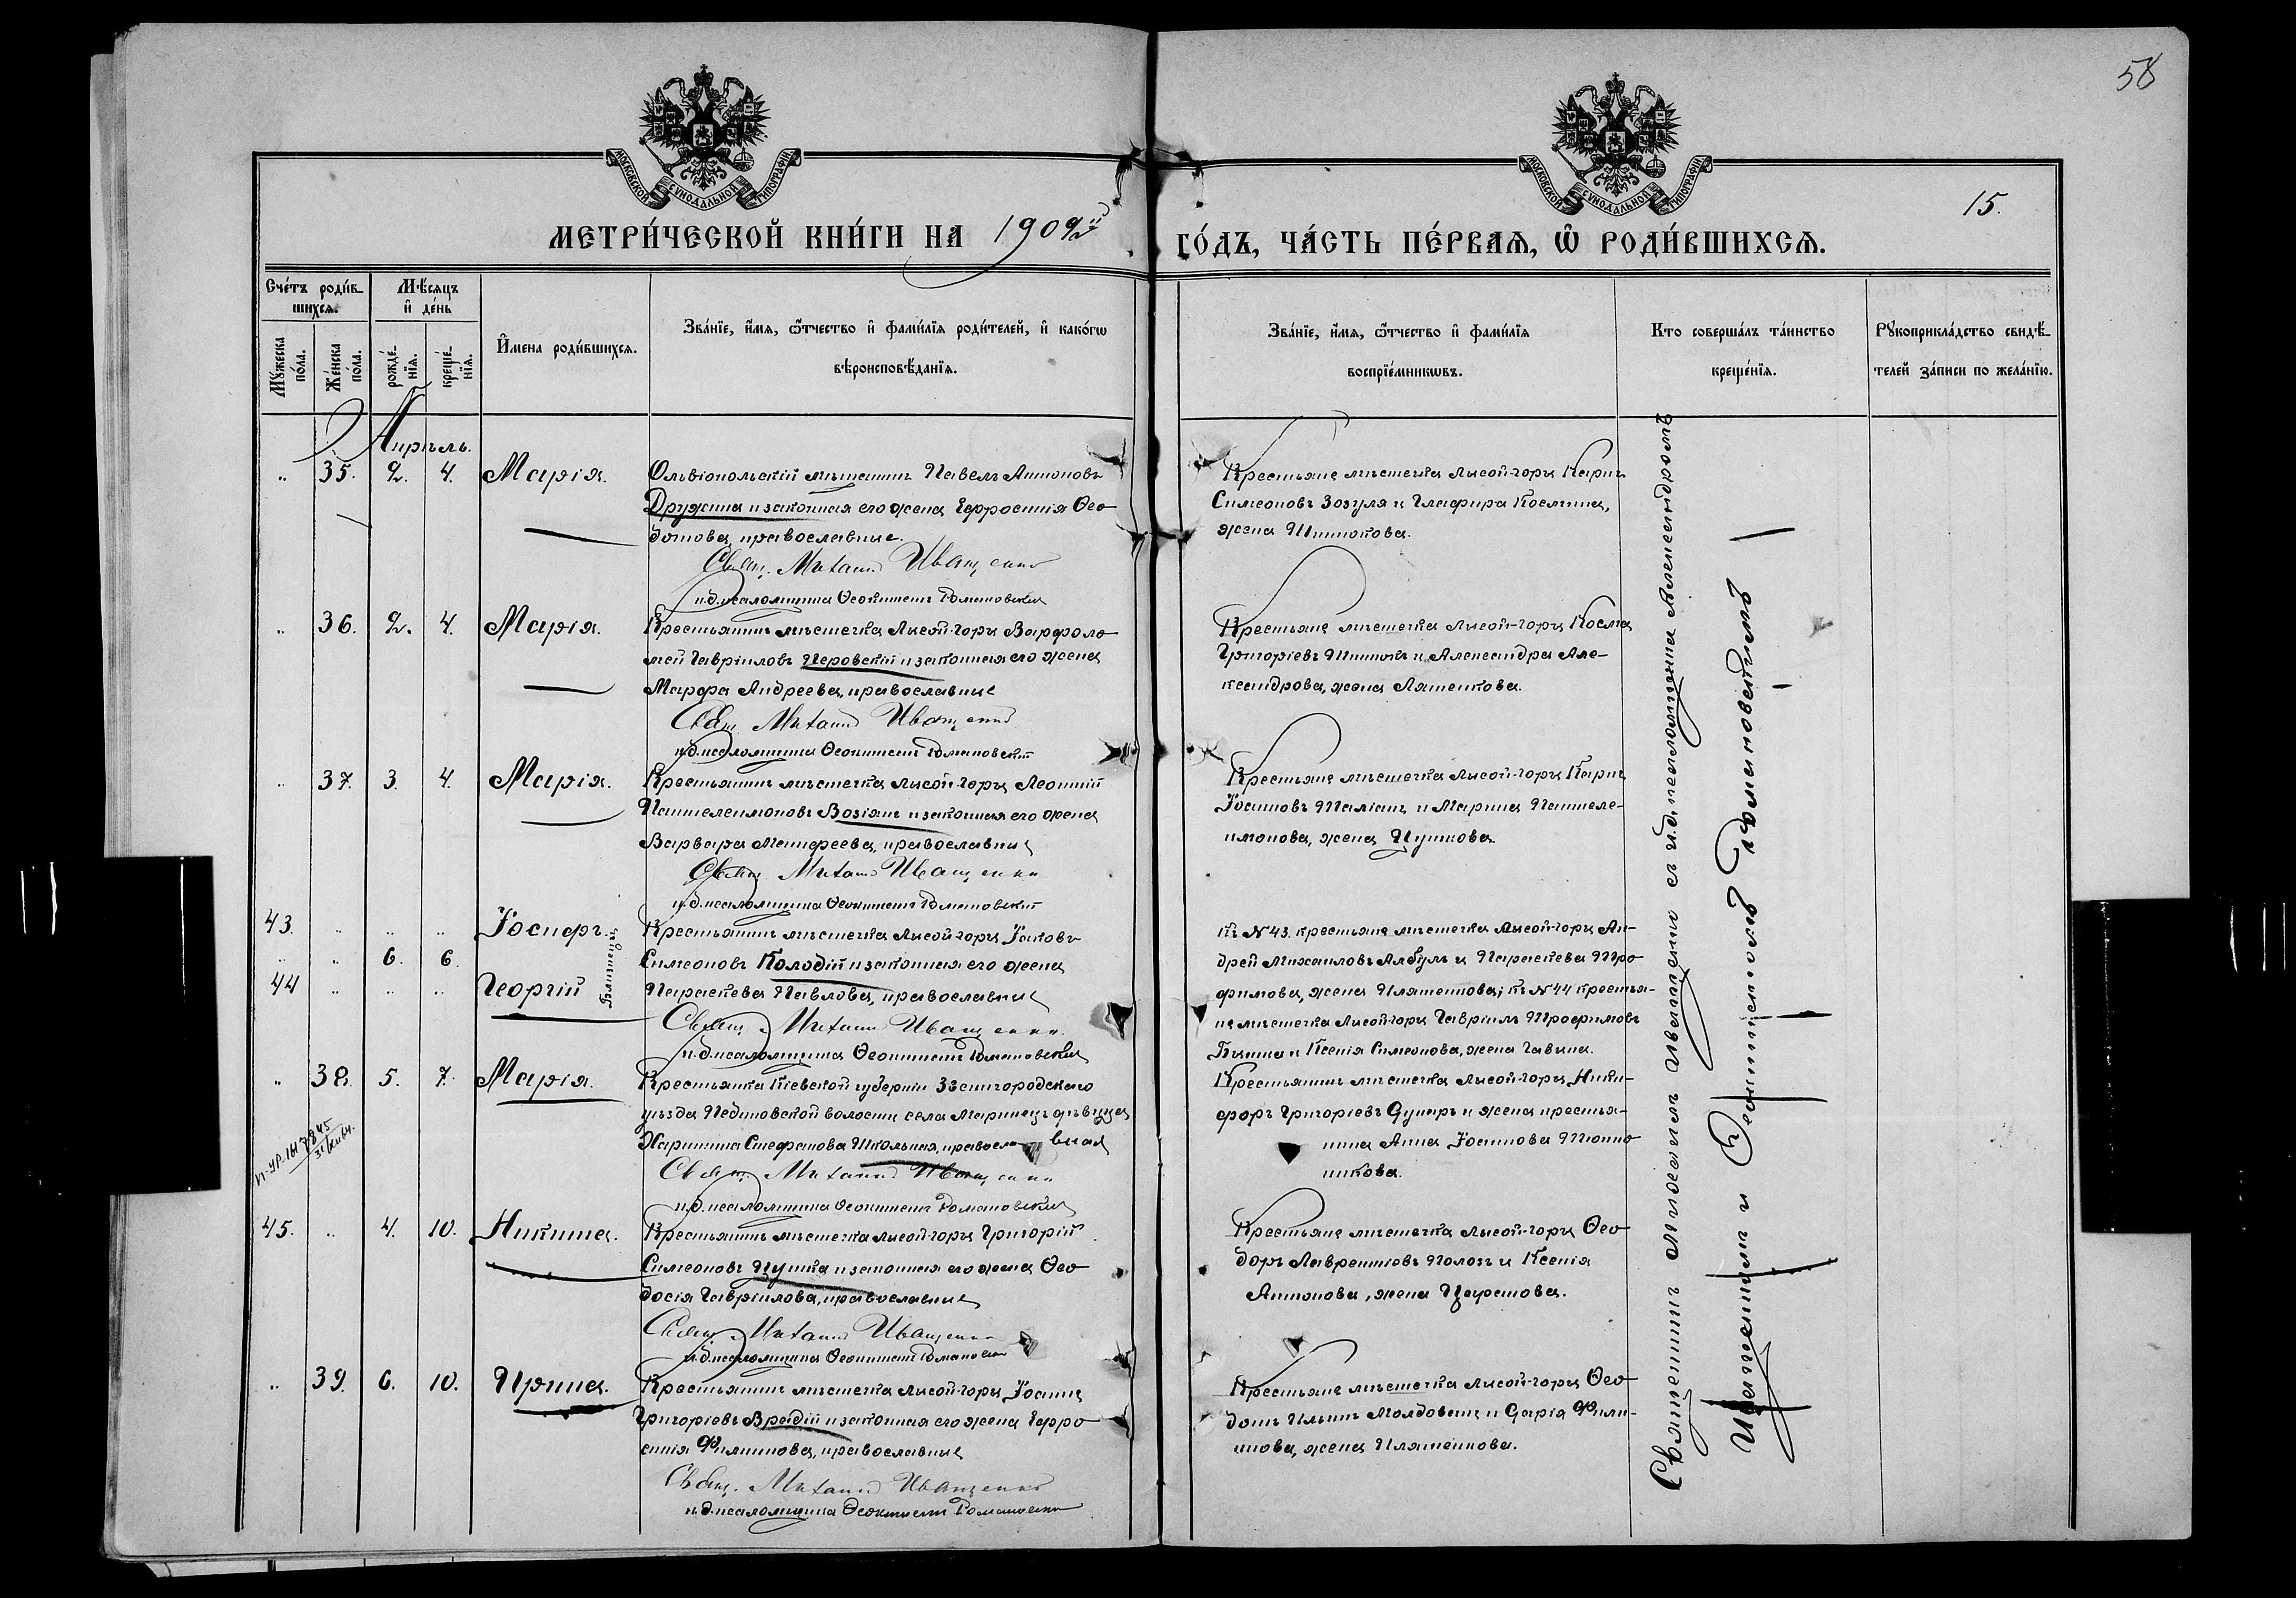 58
МОСКОВСКОЙ СѴНОДАЛЬНОЙ ТИПОГРАФІИ
МОСКОВСКОЙ СѴНОДАЛЬНОЙ ТИПОГРАФІИ
15.
МЕТРИ́ЧЕСКОЙ КНИ́ГИ НА 1909й ГО́ДЪ, ЧА́СТЬ ПЕ́РВАЯ, Ѡ РОДИ́ВШИХСЯ.
Сче́тъ роди́вшихся.
Мꙋ́жеска по́ла.
Же́нска по́ла.
Мѣ́сяцъ и҆ де́нь
рожде́нїя.
креще́нїя.
И҆́мена роди́вшихся.
Зва́нїе, и҆́мя, ѻ҆́тчество и҆ фами́лїя роди́телей, и҆ како́гѡ
вѣроисповѣ́данїя.
Зва́нїе, и҆́мя, ѻ҆́тчество и҆ фами́лїя
воспрїе́мникѡвъ.
Кто соверша́лъ та́инство
креще́нїя.
Рꙋкоприкла́дство свидѣ́-
телей за́писи по жела́нїю.
Апрѣль.
„ 35. 2. 4. Марія.
Ольвіопольскій мѣщанинъ Павелъ Антоновъ
Дружина и законная его жена Евфросинія Ѳео-
дотова, православные.
Свящ. Михаил Иващенко
и.д. псаломщика Ѳеоктистъ Домановскій
Крестьяне мѣстечка Лысой-горы Карпъ
Симеоновъ Зозуля и Глафира Косьмина,
жена Шпитокова.
„ 36. 2. 4. Марія.
Крестьянинъ мѣстечка Лысой-горы Варфоло-
мей Гавріиловъ Перовскій и законная его жена
Марфа Андреева, православные
Свящ. Михаил Иващенко
и.д. псаломщика Ѳеоктистъ Домановскій
Крестьяне мѣстечка Лысой-горы Косма
Григоріевъ и Александра Але-
ксандрова, жена Ляшенкова.
„ 37. 3. 4. Марія.
Крестьянинъ мѣстечка Лысой-горы Леонтій
Пантелеимоновъ Возіянъ и законная его жена
Варвара Манфреева, православные
Свящ. Михаил Иващенко
и.д. псаломщика Ѳеоктистъ Домановскій
Крестьяне мѣстечка Лысой-горы Карпъ
Іоанновъ и Марина Пантеле-
имонова, жена Цупкова.
43. „ „ „ Іосифъ.
„ „ 6. 6.
44 „ „ „ Георгій
близнецы
Крестьянинъ мѣстечка Лысой-горы Іаковъ
Симеоновъ Колодій и законная его жена
Параскева Павлова, православные
Свящ. Михаил Иващенко
и.д. псаломщика Ѳеоктистъ Домановскій
къ №43. крестьяне мѣстечка Лысой-горы Ан-
дрей Михаиловъ Албулъ и Параскева Тро-
фимова, жена Иляшенкова; къ №44 крестья-
не мѣстечка Лысой-горы Гавріилъ Трофимовъ
и Ксенія Симеонова, жена
„ 38. 5. 7. Марія.
Крестьянка Кіевской губерніи Звенигородскаго
уѣзда Пединовской волости села дѣвица
Харитина Стефанова Школьная, православная
Свящ. Михаил Иващенко
и.д. псаломщика Ѳеоктистъ Домановскій
Крестьянинъ мѣстечка Лысой-горы Ники-
форъ Григоріевъ и жена крестья-
нина Анна Іоаннова Тютю-
никова.
45. „ 4. 10. Никита.
Крестьянинъ мѣстечка Лысой-горы Григорій
Симеоновъ Цупка и законная его жена Ѳео-
досія Гавріилова, православные
Свящ. Михаил Иващенко
и.д. псаломщика Ѳеоктистъ Домановскій
Крестьяне мѣстечка Лысой-горы Ѳео-
доръ Лаврентіевъ Полозъ и Ксенія
Антонова, жена
„ 39. 6. 10. Ирина.
Крестьянинъ мѣстечка Лысой-горы Іоаннъ
Григоріевъ Врадій и законная его жена Евфро-
синія Филиппова, православные
Свящ. Михаил Иващенко
и.д. псаломщика Ѳеоктистъ Домановскій
Крестьяне мѣстечка Лысой-горы Ѳео-
дотъ Ильинъ Молдованъ и Дарія Фили-
ппова, жена Иляшенкова.
Священникъ Михаилъ Иващенко съ и.д. псаломщика Александромъ
и Ѳеоктистомъ Домановскимъ